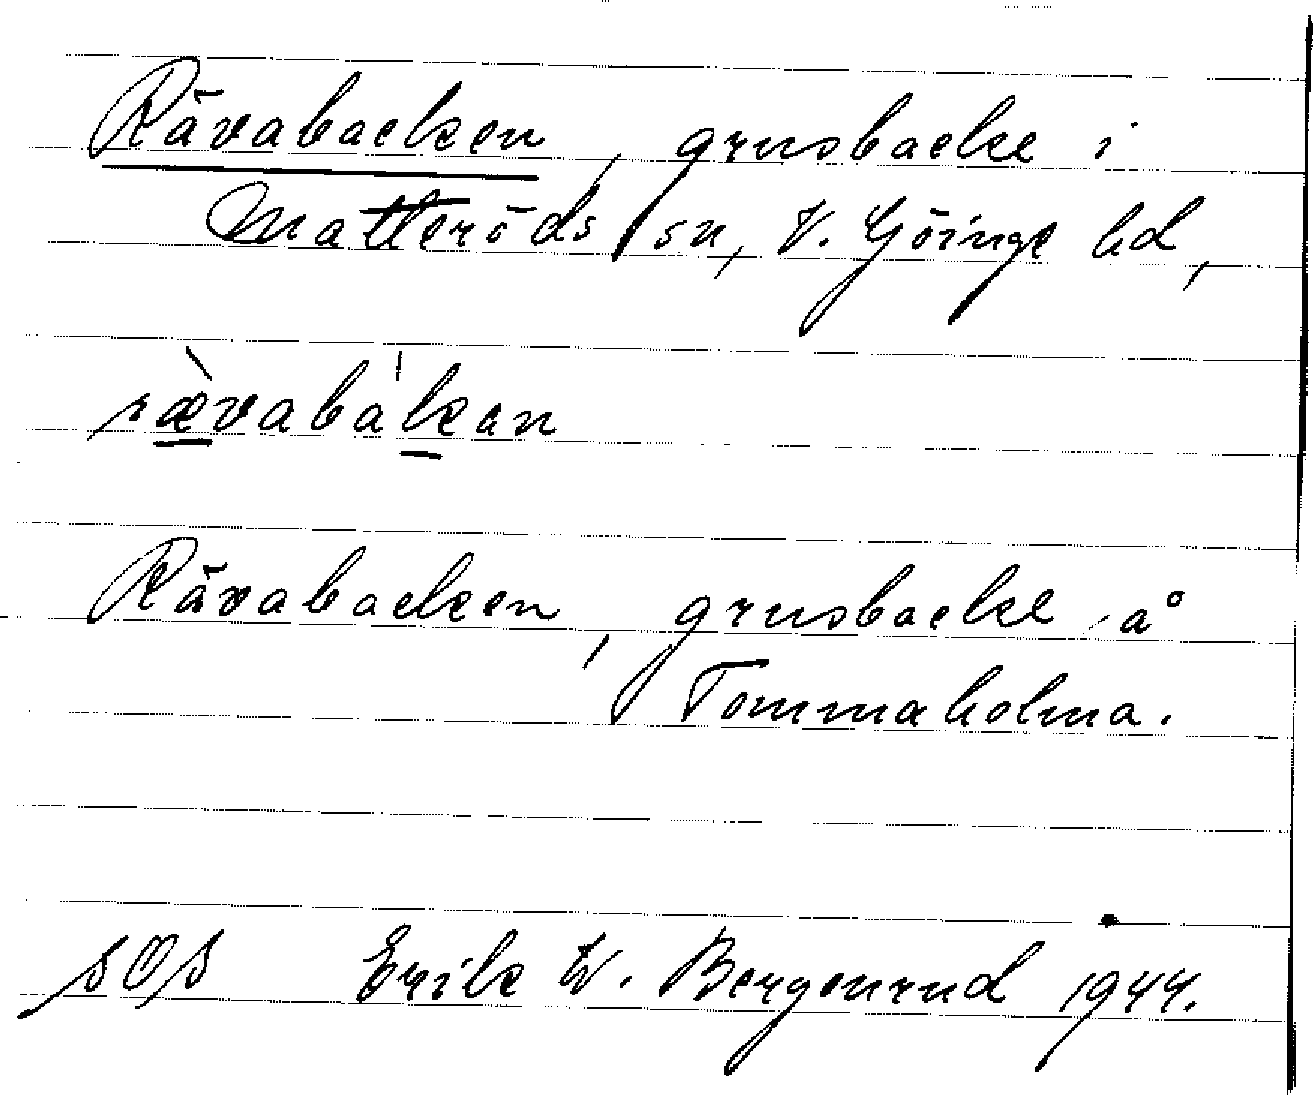 Rävabacken, grusbacke i
Matteröds sn, V. Göinge hd,
rævabakan
Rävabacken, grusbacke å
Tommaholma.
SOS Erik W. Bergenrud 1944.